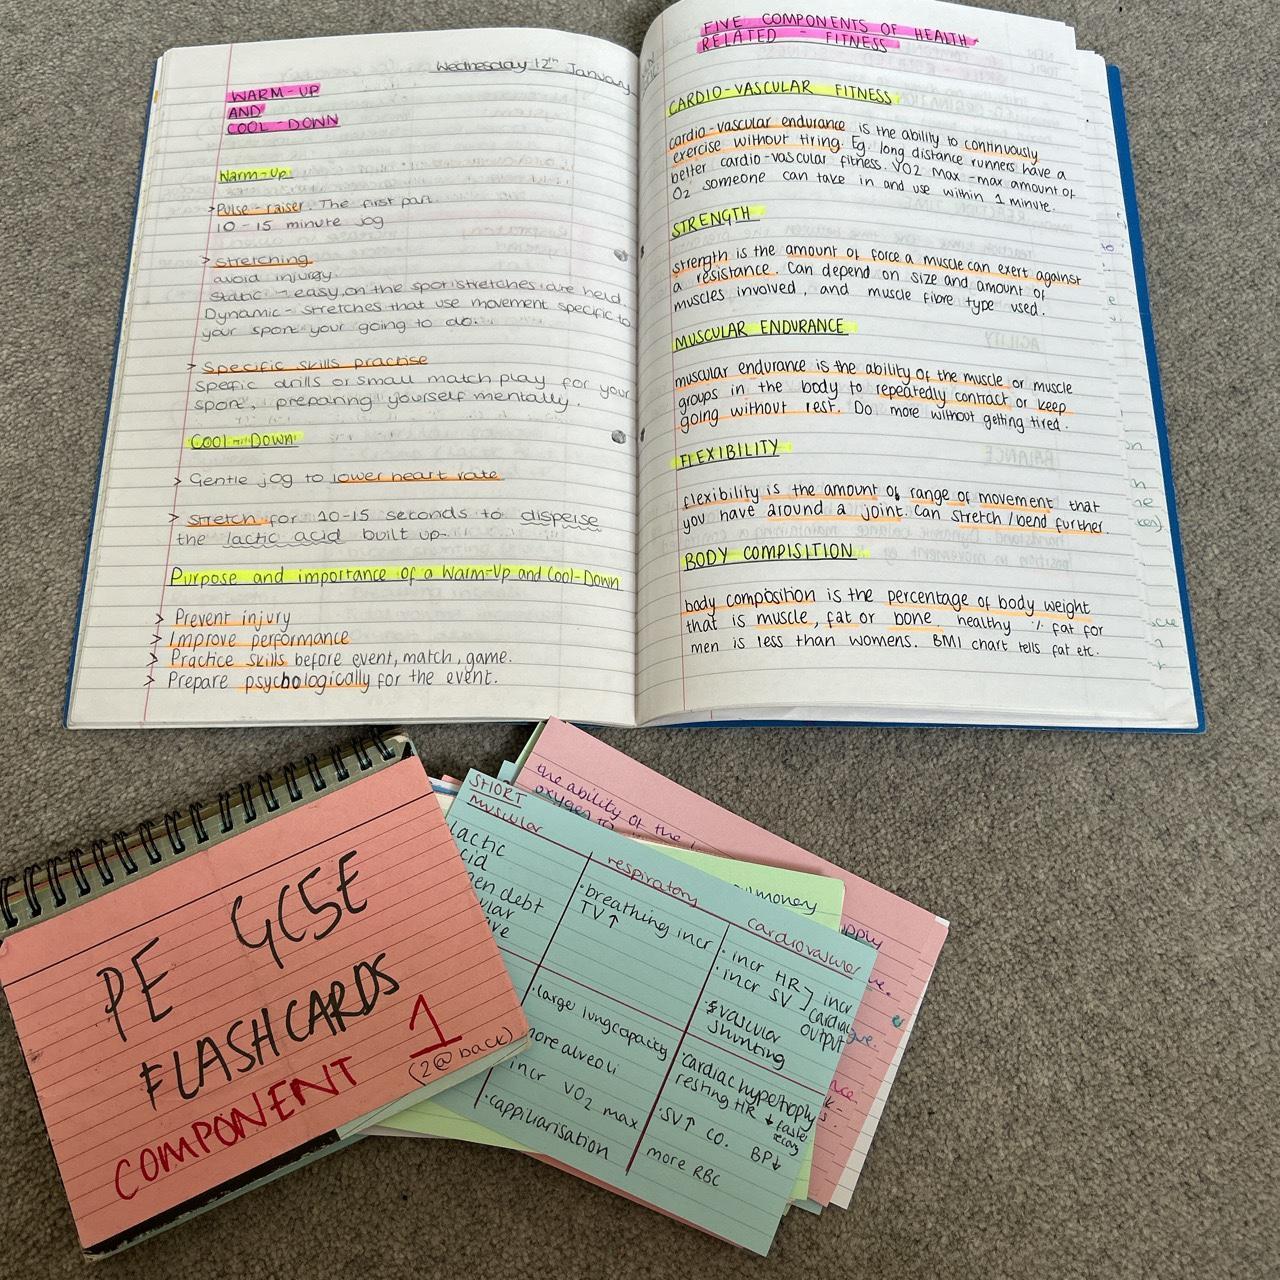 Wednesday 12th January
WARM-UP
AND
COOL-DOWN
Warm-Up
>Pulse-raiser. The first part.
10-15 minute jog
> stretching
avoid injurgy.
static - easy, on the spot stretches are held
Dynamic - stretches that use movement specific to
your sport your going to do.
> Specific skills practise
Spefic drills or small match play for your
sport, preparing yourself mentally.
Cool-Down
> Gentle jog to lower heart rate
> stretch for 10-15 seconds to disperse
the lactic acid built up.
Purpose and importance of a Warm-Up and Cool-Down
> Prevent injury
> Improve performance
> Practice skills before event, match, game.
> Prepare psychologically for the event.
FIVE COMPONENTS OF HEALTH
RELATED - FITNESS
CARDIO-VASCULAR FITNESS
cardio-vascular endurance is the ability to continuously
exercise without tiring. Eg. long distance runners have a
better cardio-vascular fitness. VO2 max - max amount of
O2 someone can take in and use within 1 minute.
STRENGTH
strength is the amount of force a muscle can exert against
a resistance. Can depend on size and amount of
muscles involved, and muscle fibre type used.
MUSCULAR ENDURANCE
muscular endurance is the ability of the muscle or muscle
groups in the body to repeatedly contract or keep
going without rest. Do more without getting tired.
FLEXIBILITY
flexibility is the amount of range of movement that
you have around a joint. Can stretch/bend further.
BODY COMPISITION
body composition is the percentage of body weight
that is muscle, fat or bone. healthy % fat for
men is less than womens. BMI chart tells fat etc.
PE GCSE
FLASHCARDS
COMPONENT 1
(2@ back)
the ability of the
oxygen to
SHORT
muscular
lactic
cid
gen debt
ular
respiratory
• breathing incr
TV↑
cardiovascular
• incr HR ] incr
• incr SV cardiac
output
• vascular
shunting
• large lung capacity
more alveoli
incr VO2 max
• cappiliarisation
• cardiac hypertrophy
resting HR ↓
• SV↑ CO. BP↓
more RBC
ulmonary